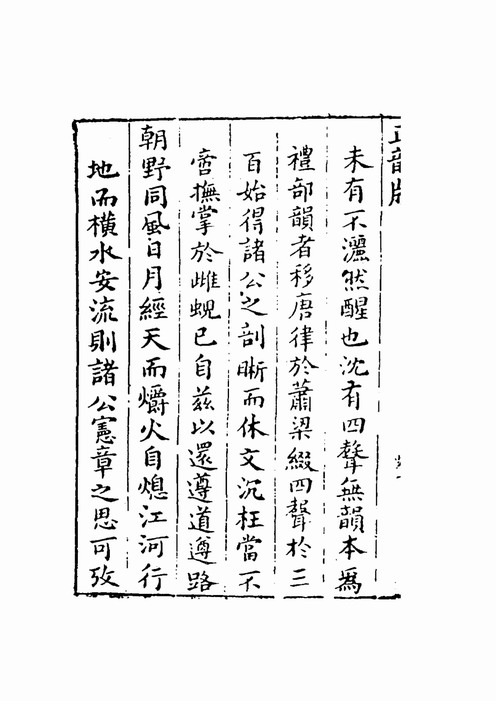 正韻牋
未有不灑然醒也沈有四聲無韻本爲
禮部韻者移唐律於蕭梁綴四聲於三
百始得諸公之剖晣而休文沉枉當不
啻撫掌於雌蜺已自茲以還遵道遵路
朝野同風日月經天而爝火自熄江河行
地而橫水安流則諸公憲章之思可攷